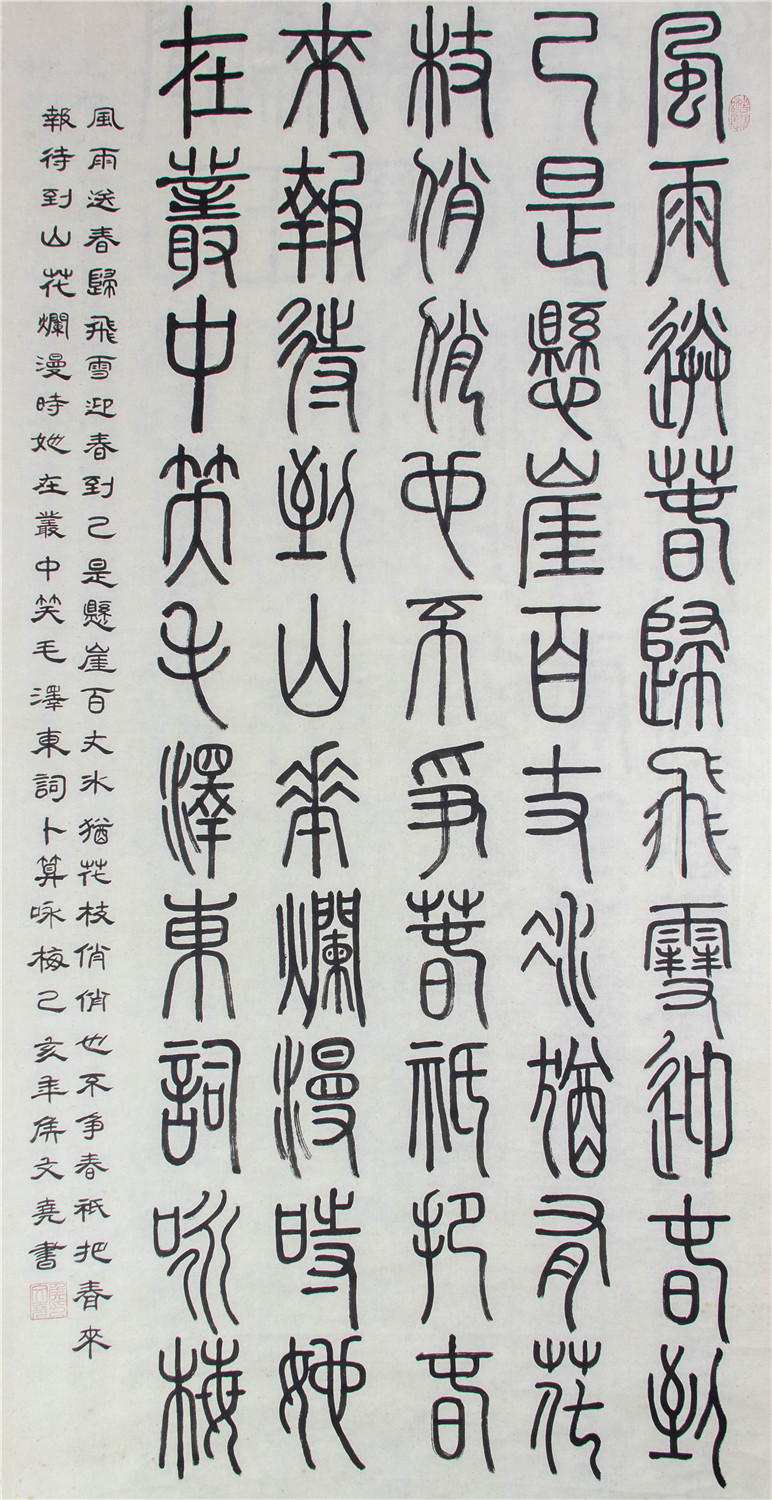 風雨送春歸飛雪迎春到
已是懸崖百丈冰猶有花
枝俏俏也不爭春祇把春
來報待到山花爛漫時她
在叢中笑毛澤東詞咏梅
風雨送春歸飛雪迎春到已是懸崖百丈冰猶花枝俏俏也不爭春祇把春來
報待到山花爛漫時她在叢中笑毛澤東詞卜算咏梅己亥年焦文堯書